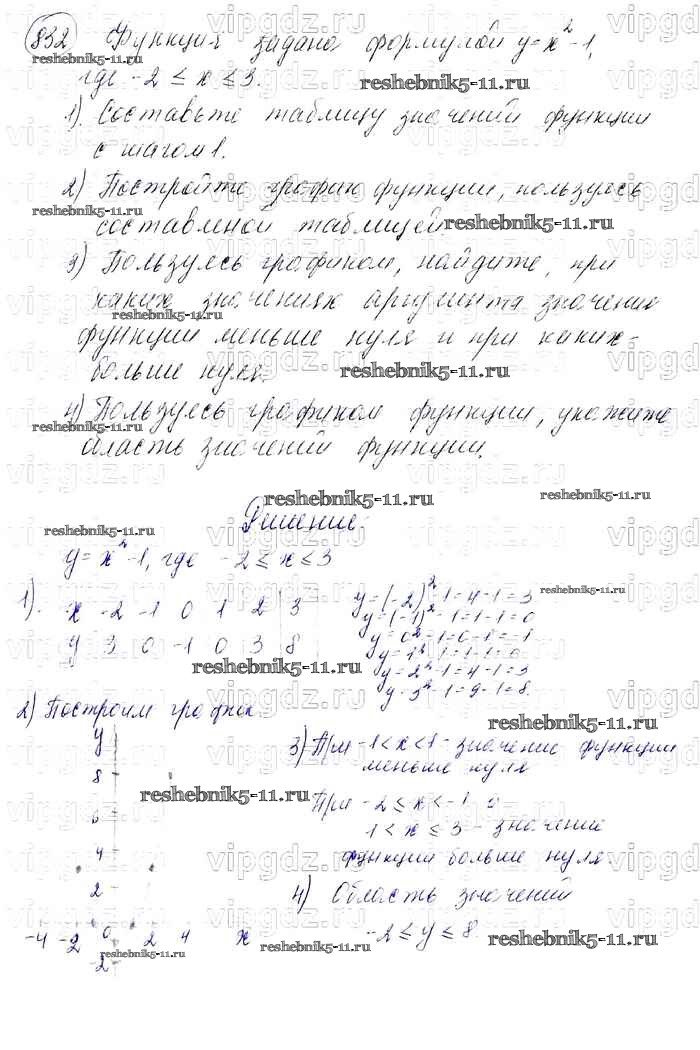 832 Функция задана формулой y=x²-1,
где -2 ≤ x ≤ 3.
1) Составьте таблицу значений функции
с шагом 1.
2) Постройте график функции, пользуясь
составленой таблицей
3) Пользуясь графиком, найдите, при
каких значениях аргумента значения
функции меньше нуля и при каких-
больше нуля.
4) Пользуясь графиком функции, укажите
область значений функции.
Решение.
y=x²-1, где -2 ≤ x ≤ 3
1). x -2 -1 0 1 2 3
y 3 0 -1 0 3 8
y=(-2)²-1=4-1=3
y=(-1)²-1=1-1=0
y=0²-1=0-1=-1
y=1²-1=1-1=0
y=2²-1=4-1=3
y=3²-1=9-1=8
2) Построим график
y
8
6
4
2
-4 -2 0 2 4 x
-2
3) При -1<x<1-значение функции
меньше нуля
При -2≤x<-1 и
1<x≤3 - значение
функции больше нуля.
4) Область значений
-2≤y≤8
reshebnik5-11.ru
vipgdz.ru